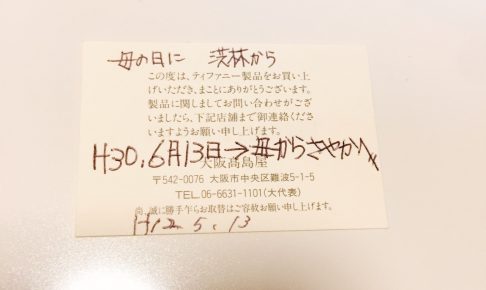 母の日に 洪林から
この度は、ティファニー製品をお買い上
げいただき、まことにありがとうございます。
製品に関しましてお問い合わせがござ
いましたら、下記店舗まで御連絡くださ
いますようお願い申し上げます。
H30.6月13日→母からさやかへ
大阪髙島屋
〒542-0076 大阪市中央区難波5-1-5
TEL.06-6631-1101(大代表)
尚、誠に勝手乍らお取替はご容赦お願い申し上げます。
H12.5.13